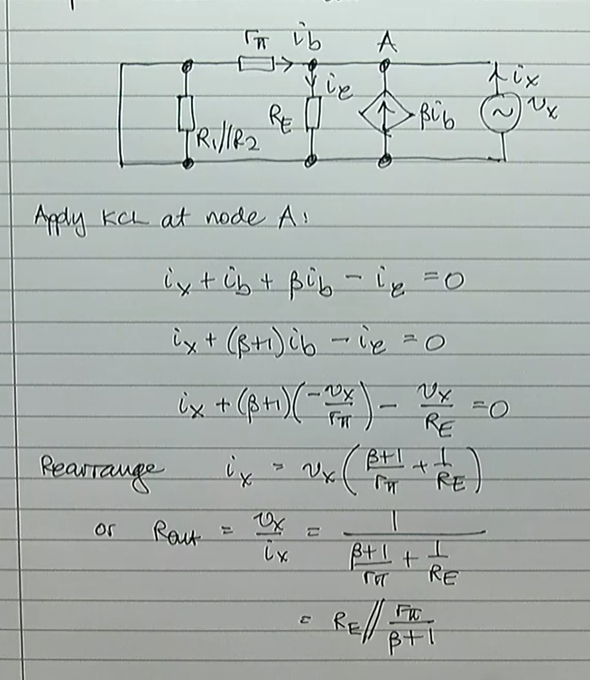 rπ ib A
ie ix
R1//R2 RE βib vx
Apply KCL at node A:
ix + ib + βib - ie = 0
ix + (β+1)ib - ie = 0
ix + (β+1)(-vx/rπ) - vx/RE = 0
Rearrange ix = vx((β+1)/rπ + 1/RE)
or Rout = vx/ix = 1/((β+1)/rπ + 1/RE)
= RE // rπ/(β+1)